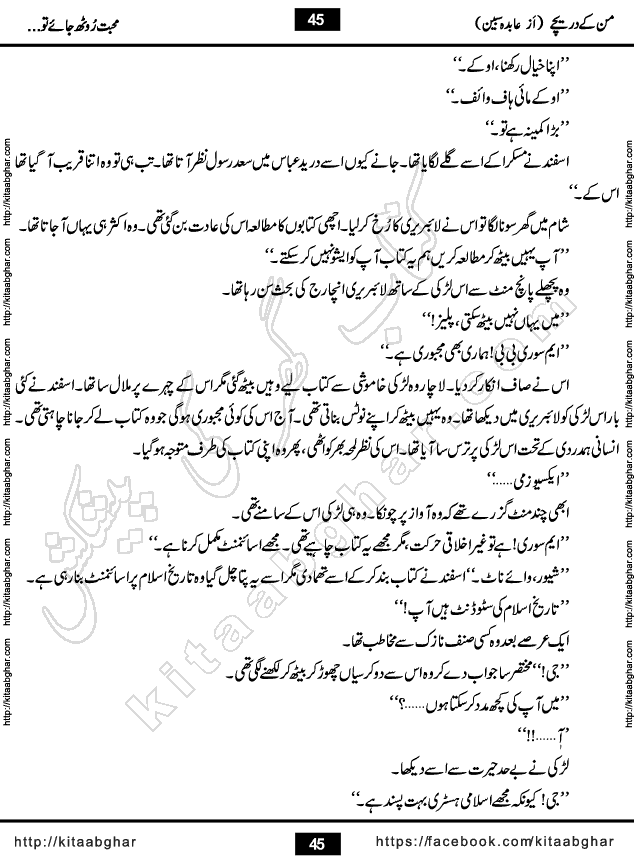 من کے دریچے (از عابدہ سبین)
45
محبت رُوٹھ جائے تو...
’’اپنا خیال رکھنا، اوکے۔‘‘
’’اوکے مائی ہاف وائف۔‘‘
’’بڑا کمینہ ہے تو۔‘‘
اسفند نے مسکرا کے اسے گلے لگایا تھا۔ جانے کیوں اسے درید عباس میں سعد رسول نظر آتا تھا۔ تب ہی تو وہ اتنا قریب آ گیا تھا
اس کے۔‘‘
شام میں گھر سونا لگا تو اس نے لائبریری کا رُخ کر لیا۔ اچھی کتابوں کا مطالعہ اس کی عادت بن گئی تھی۔ وہ اکثر ہی یہاں آ جاتا تھا۔
’’آپ یہیں بیٹھ کر مطالعہ کریں ہم یہ کتاب آپ کو ایشو نہیں کر سکتے۔‘‘
وہ پچھلے پانچ منٹ سے اس لڑکی کے ساتھ لائبریری انچارج کی بحث سن رہا تھا۔
’’میں یہاں نہیں بیٹھ سکتی، پلیز!‘‘
’’ایم سوری بی بی! ہماری بھی مجبوری ہے۔‘‘
اس نے صاف انکار کر دیا۔ لاچار وہ لڑکی خاموشی سے کتاب لیے وہیں بیٹھ گئی مگر اس کے چہرے پر ملال سا تھا۔ اسفند نے کئی
بار اس لڑکی کو لائبریری میں دیکھا تھا۔ وہ یہیں بیٹھ کر اپنے نوٹس بناتی تھی۔ آج اس کی کوئی مجبوری ہو گی جو وہ کتاب لے کر جانا چاہتی تھی۔
انسانی ہمدردی کے تحت اس لڑکی پر ترس سا آیا تھا۔ اس کی نظر لمحہ بھر کو اٹھی، پھر وہ اپنی کتاب کی طرف متوجہ ہو گیا۔
’’ایکسیوزمی......‘‘
ابھی چند منٹ گزرے تھے کہ وہ آواز پر چونکا۔ وہ ہی لڑکی اس کے سامنے تھی۔
’’ایم سوری! ہے تو غیر اخلاقی حرکت، مگر مجھے یہ کتاب چاہیے تھی۔ مجھے اسائنمنٹ مکمل کرنا ہے۔‘‘
’’شیور، وائے ناٹ۔‘‘ اسفند نے کتاب بند کر کے اسے تھما دی مگر اسے یہ پتا چل گیا وہ تاریخ اسلام پر اسائنمنٹ بنا رہی ہے۔
’’تاریخ اسلام کی سٹوڈنٹ ہیں آپ!‘‘
ایک عرصے بعد وہ کسی صنف نازک سے مخاطب تھا۔
’’جی!‘‘ مختصر سا جواب دے کر وہ اس سے دو کرسیاں چھوڑ کر بیٹھ کر لکھنے لگی تھی۔
’’میں آپ کی کچھ مدد کر سکتا ہوں......؟‘‘
’’آ......!!‘‘
لڑکی نے بے حد حیرت سے اسے دیکھا۔
’’جی! کیونکہ مجھے اسلامی ہسٹری بہت پسند ہے۔‘‘
http://kitaabghar.com
http://kitaabghar.com
http://kitaabghar.com
http://kitaabghar.com
http://kitaabghar.com
http://kitaabghar.com
http://kitaabghar.com
http://kitaabghar.com
http://kitaabghar.com
http://kitaabghar.com
http://kitaabghar.com
http://kitaabghar.com
کتاب گھر کی پیشکش
kitaabghar.com
http://kitaabghar
45
https://facebook.com/kitaabghar